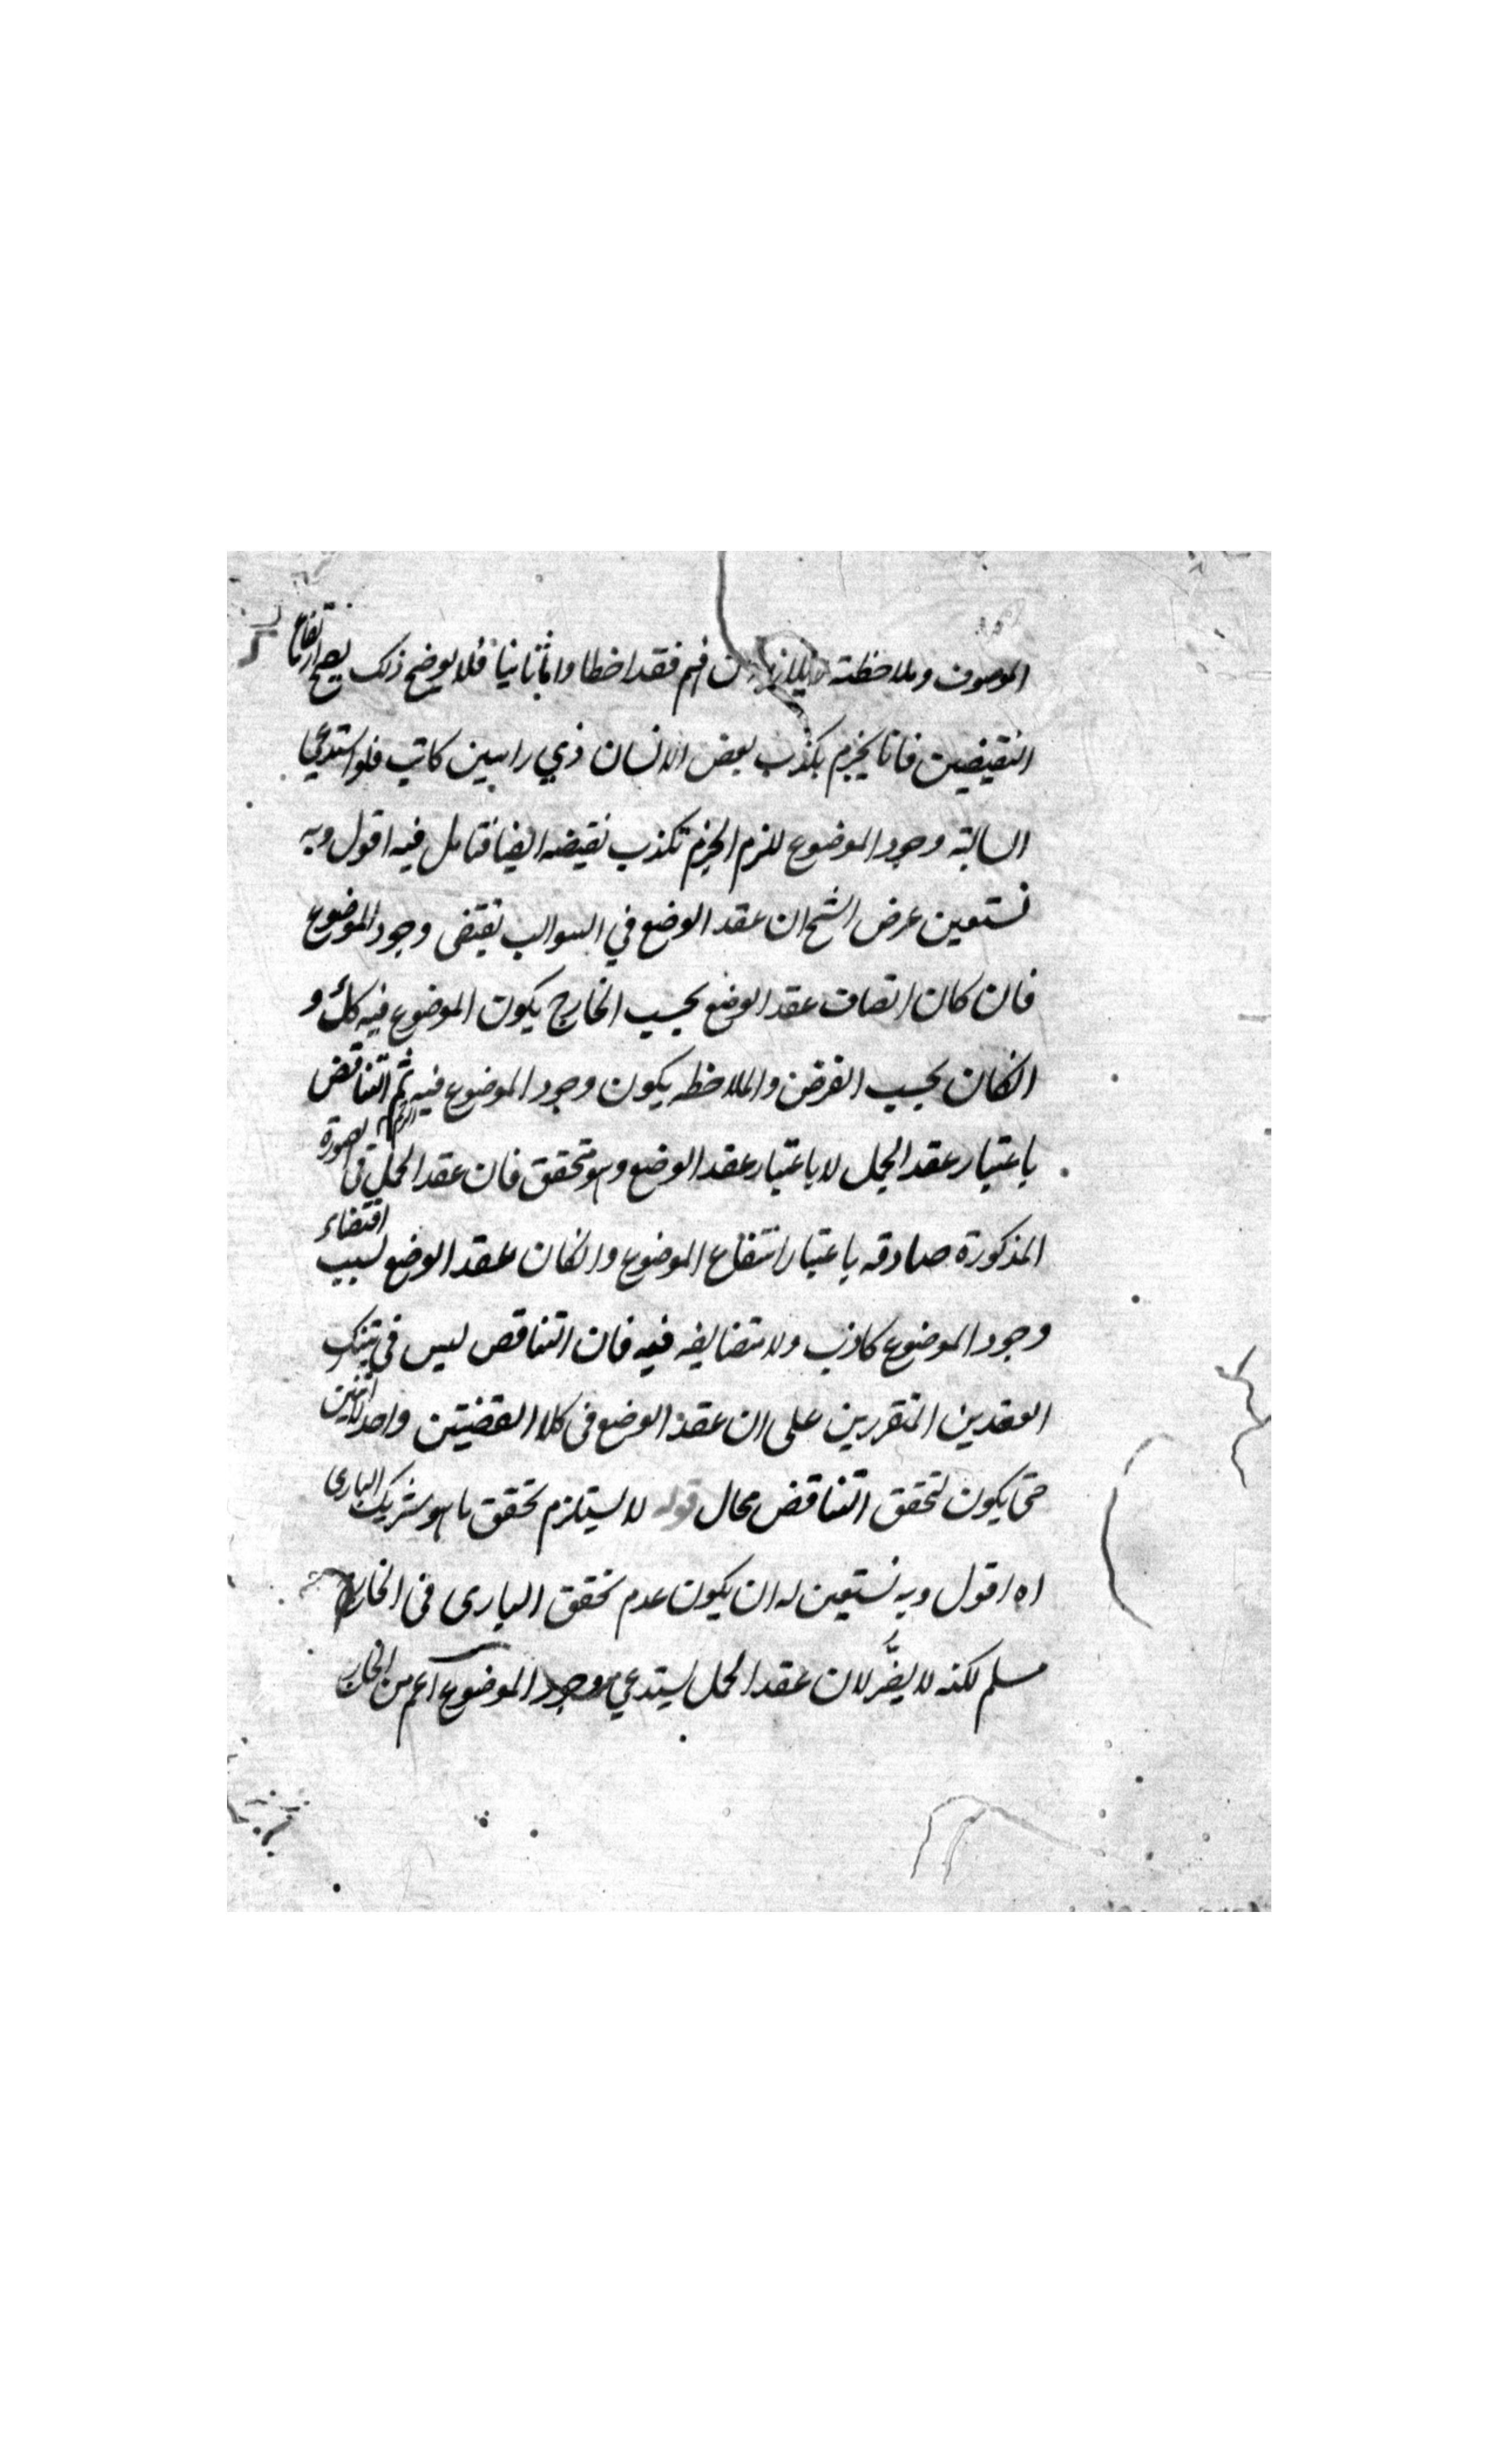 الموصوف وملاحظته فمن فهم فقد اخطا واما ثانيا فلا يوضح ذلك يصح ارتفاع
النقيضين فانا نجزم بكذب بعض الانسان ذي راسين كاتب فلو استدعى
السالبة وجود الموضوع للزم الجزم بكذب نقيضه ايضا فتامل فيه اقول وبه
نستعين غرض الشيخ ان عقد الوضع في السوالب يقتضى وجود الموضوع
فان كان اتصاف عقد الوضع بحسب الخارج يكون الموضوع فيه كك و
انكان بحسب الفرض والملاحظه يكون وجود الموضوع فيه ثم التناقض
باعتبار عقد الحمل لا باعتبار عقد الوضع وهو متحقق فان عقد الحمل في الصورة
المذكورة صادقه باعتبار انتفاع الموضوع وانكان عقد الوضع لسبب اقتضاء
وجود الموضوع كاذب ولا تضايقه فيه فان التناقض ليس في تينك
العقدين المتقررين على ان عقد الوضع فى كلا القضيتين واحد لا اثنين
حتى يكون لتحقق التناقض محال قوله لا يستلزم تحقق ما هو شريك البارى
اه اقول وبه نستعين له ان يكون عدم تحقق البارى فى الخارج
مسلم لكنه لا يضر لان عقد الحمل يستدعي وجود الموضوع اعم من الخارج